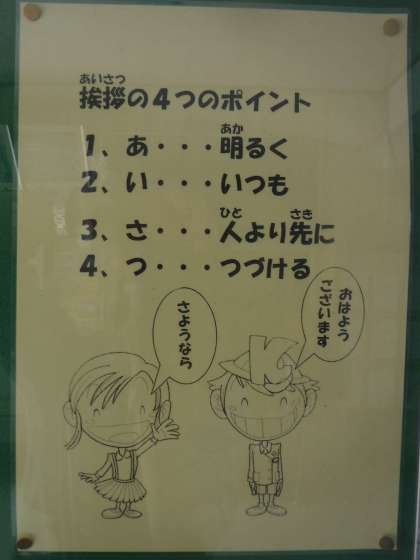 あいさつ
挨拶の４つのポイント
あか
１、あ・・・明るく
２、い・・・いつも
ひと さき
３、さ・・・人より先に
４、つ・・・つづける
おはよう
ございます
さようなら
K